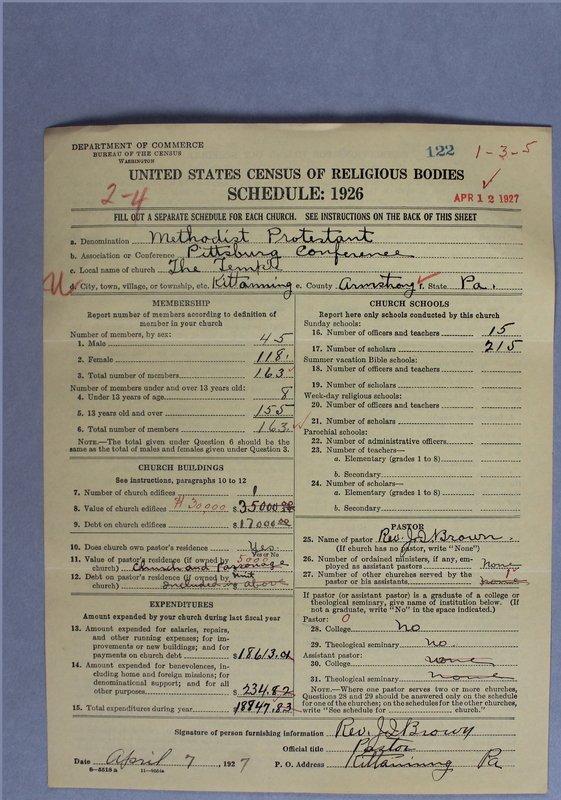 DEPARTMENT OF COMMERCE
BUREAU OF THE CENSUS
WASHINGTON
122 1-3-5
UNITED STATES CENSUS OF RELIGIOUS BODIES
2-4 SCHEDULE: 1926
APR 12 1927
FILL OUT A SEPARATE SCHEDULE FOR EACH CHURCH. SEE INSTRUCTIONS ON THE BACK OF THIS SHEET
a. Denomination Methodist Protestant
b. Association or Conference Pittsburg Conference
c. Local name of church The Temple
d. City, town, village, or township, etc. Kittanning e. County Armstrong f. State Pa.
MEMBERSHIP
Report number of members according to definition of
member in your church
Number of members, by sex:
1. Male 45
2. Female 118.
3. Total number of members 163
Number of members under and over 13 years old:
4. Under 13 years of age 8
5. 13 years old and over 155
6. Total number of members 163.
NOTE.—The total given under Question 6 should be
the same as the total of males and females given under Question 3.
CHURCH BUILDINGS
See instructions, paragraphs 10 to 12
7. Number of church edifices 1
8. Value of church edifices $30000 $35000.00
9. Debt on church edifices $17000.00
10. Does church own pastor's residence Yes.
Yes or No
11. Value of pastor's residence (if owned by 5000
church) Church and Parsonage
12. Debt on pastor's residence (if owned by
church) Included in above
EXPENDITURES
Amount expended by your church during last fiscal year
13. Amount expended for salaries, repairs,
and other running expenses; for im-
provements or new buildings; and for
payments on church debt $18613.01
14. Amount expended for benevolences, in-
cluding home and foreign missions; for
denominational support; and for all
other purposes $234.82
15. Total expenditures during year 18847.83
CHURCH SCHOOLS
Report here only schools conducted by this church
Sunday schools:
16. Number of officers and teachers 15
17. Number of scholars 215
Summer vacation Bible schools:
18. Number of officers and teachers
19. Number of scholars
Week-day religious schools:
20. Number of officers and teachers
21. Number of scholars
Parochial schools:
22. Number of administrative officers
23. Number of teachers—
a. Elementary (grades 1 to 8)
b. Secondary
24. Number of scholars—
a. Elementary (grades 1 to 8)
b. Secondary
PASTOR
25. Name of pastor Rev. J.D. Brown.
(If church has no pastor, write "None")
26. Number of ordained ministers, if any, em-
ployed as assistant pastors None
27. Number of other churches served by the
pastor or his assistants none
If pastor (or assistant pastor) is a graduate of a college or
theological seminary, give name of institution below. (If
not a graduate, write "No" in the space indicated.)
Pastor: 0
28. College No
29. Theological seminary No.
Assistant pastor:
30. College none
31. Theological seminary none
NOTE.—Where one pastor serves two or more churches,
Questions 28 and 29 should be answered only on the schedule
for one of the churches; on the schedules for the other churches,
write "See schedule for church."
Signature of person furnishing information Rev. J.D. Brown
Official title Pastor
Date April 7, 1927 P. O. Address Kittanning Pa
8-5518a 11-9324a